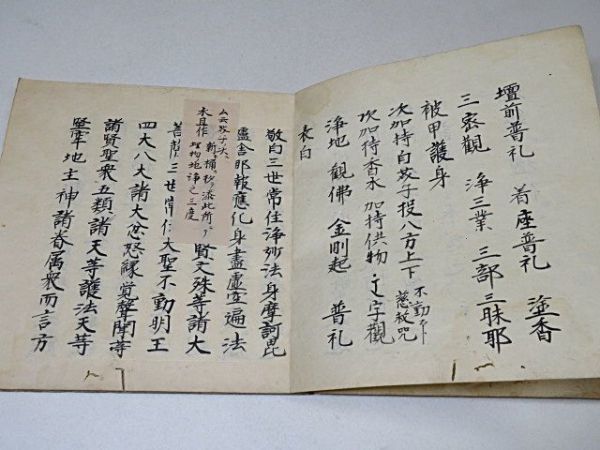 壇前普礼 着座普礼 塗香
三密觀 浄三業 三部三昧耶
被甲護身
次加持白芥子投八方上下 不動
慈救咒
次加持香水 加持供物 字觀
浄地 觀佛 金剛起 普礼
表白
敬白三世常住浄妙法身摩訶毘
盧舎那報應化身盡虚空遍法
賢文殊等諸大
菩薩三世常仁大聖不動明王
四大八大諸大忿怒縁覚聲聞等
諸賢聖衆五類諸天等護法天等
堅牢地主神諸眷属衆而言方